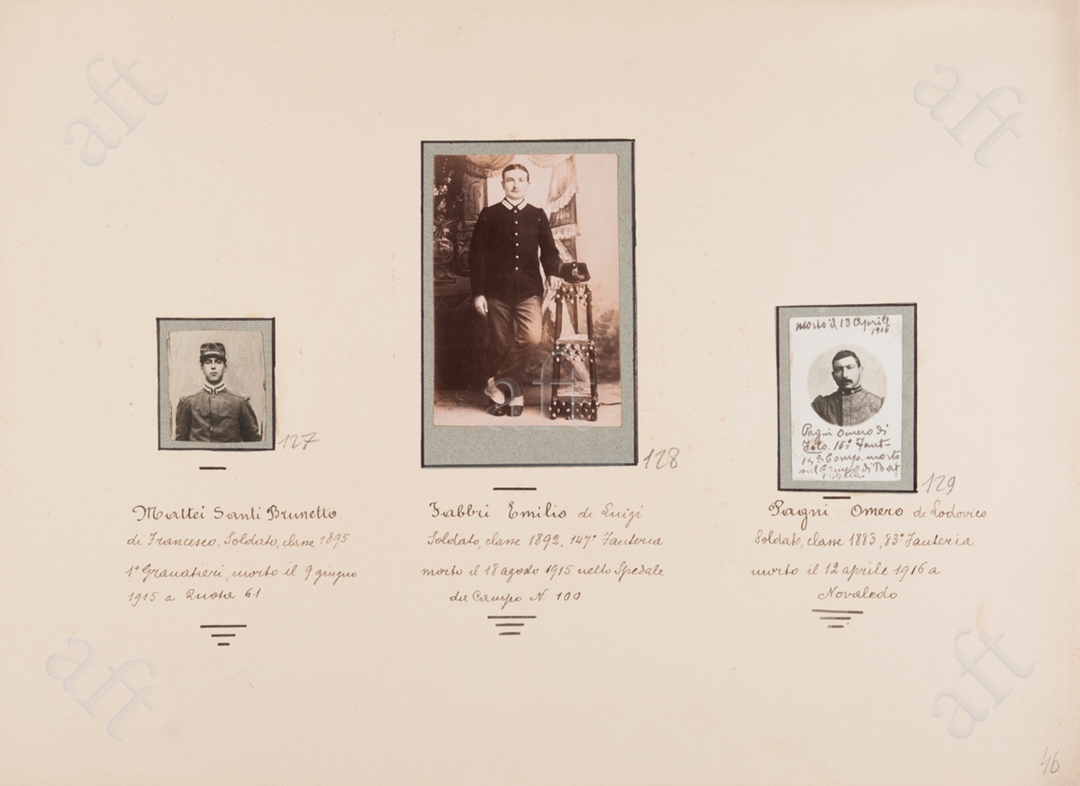 aft
aft
127
Mattei Santi Brunetto
di Francesco, Soldato, classe 1895
1° Granatieri, morto il 9 giugno
1915 a Quota 61
aft
128
Fabbri Emilio di Luigi
Soldato, classe 1892, 147° Fanteria
morto il 18 agosto 1915 nello Spedale
da Campo N. 100
morto il 13 Aprile
1916
Pagni Omero di
Fant
Comp. morto
sul Campo di
129
Pagni Omero di Lodovico
Soldato, classe 1883, 83° Fanteria
morto il 12 aprile 1916 a
Novaledo
aft
aft
46